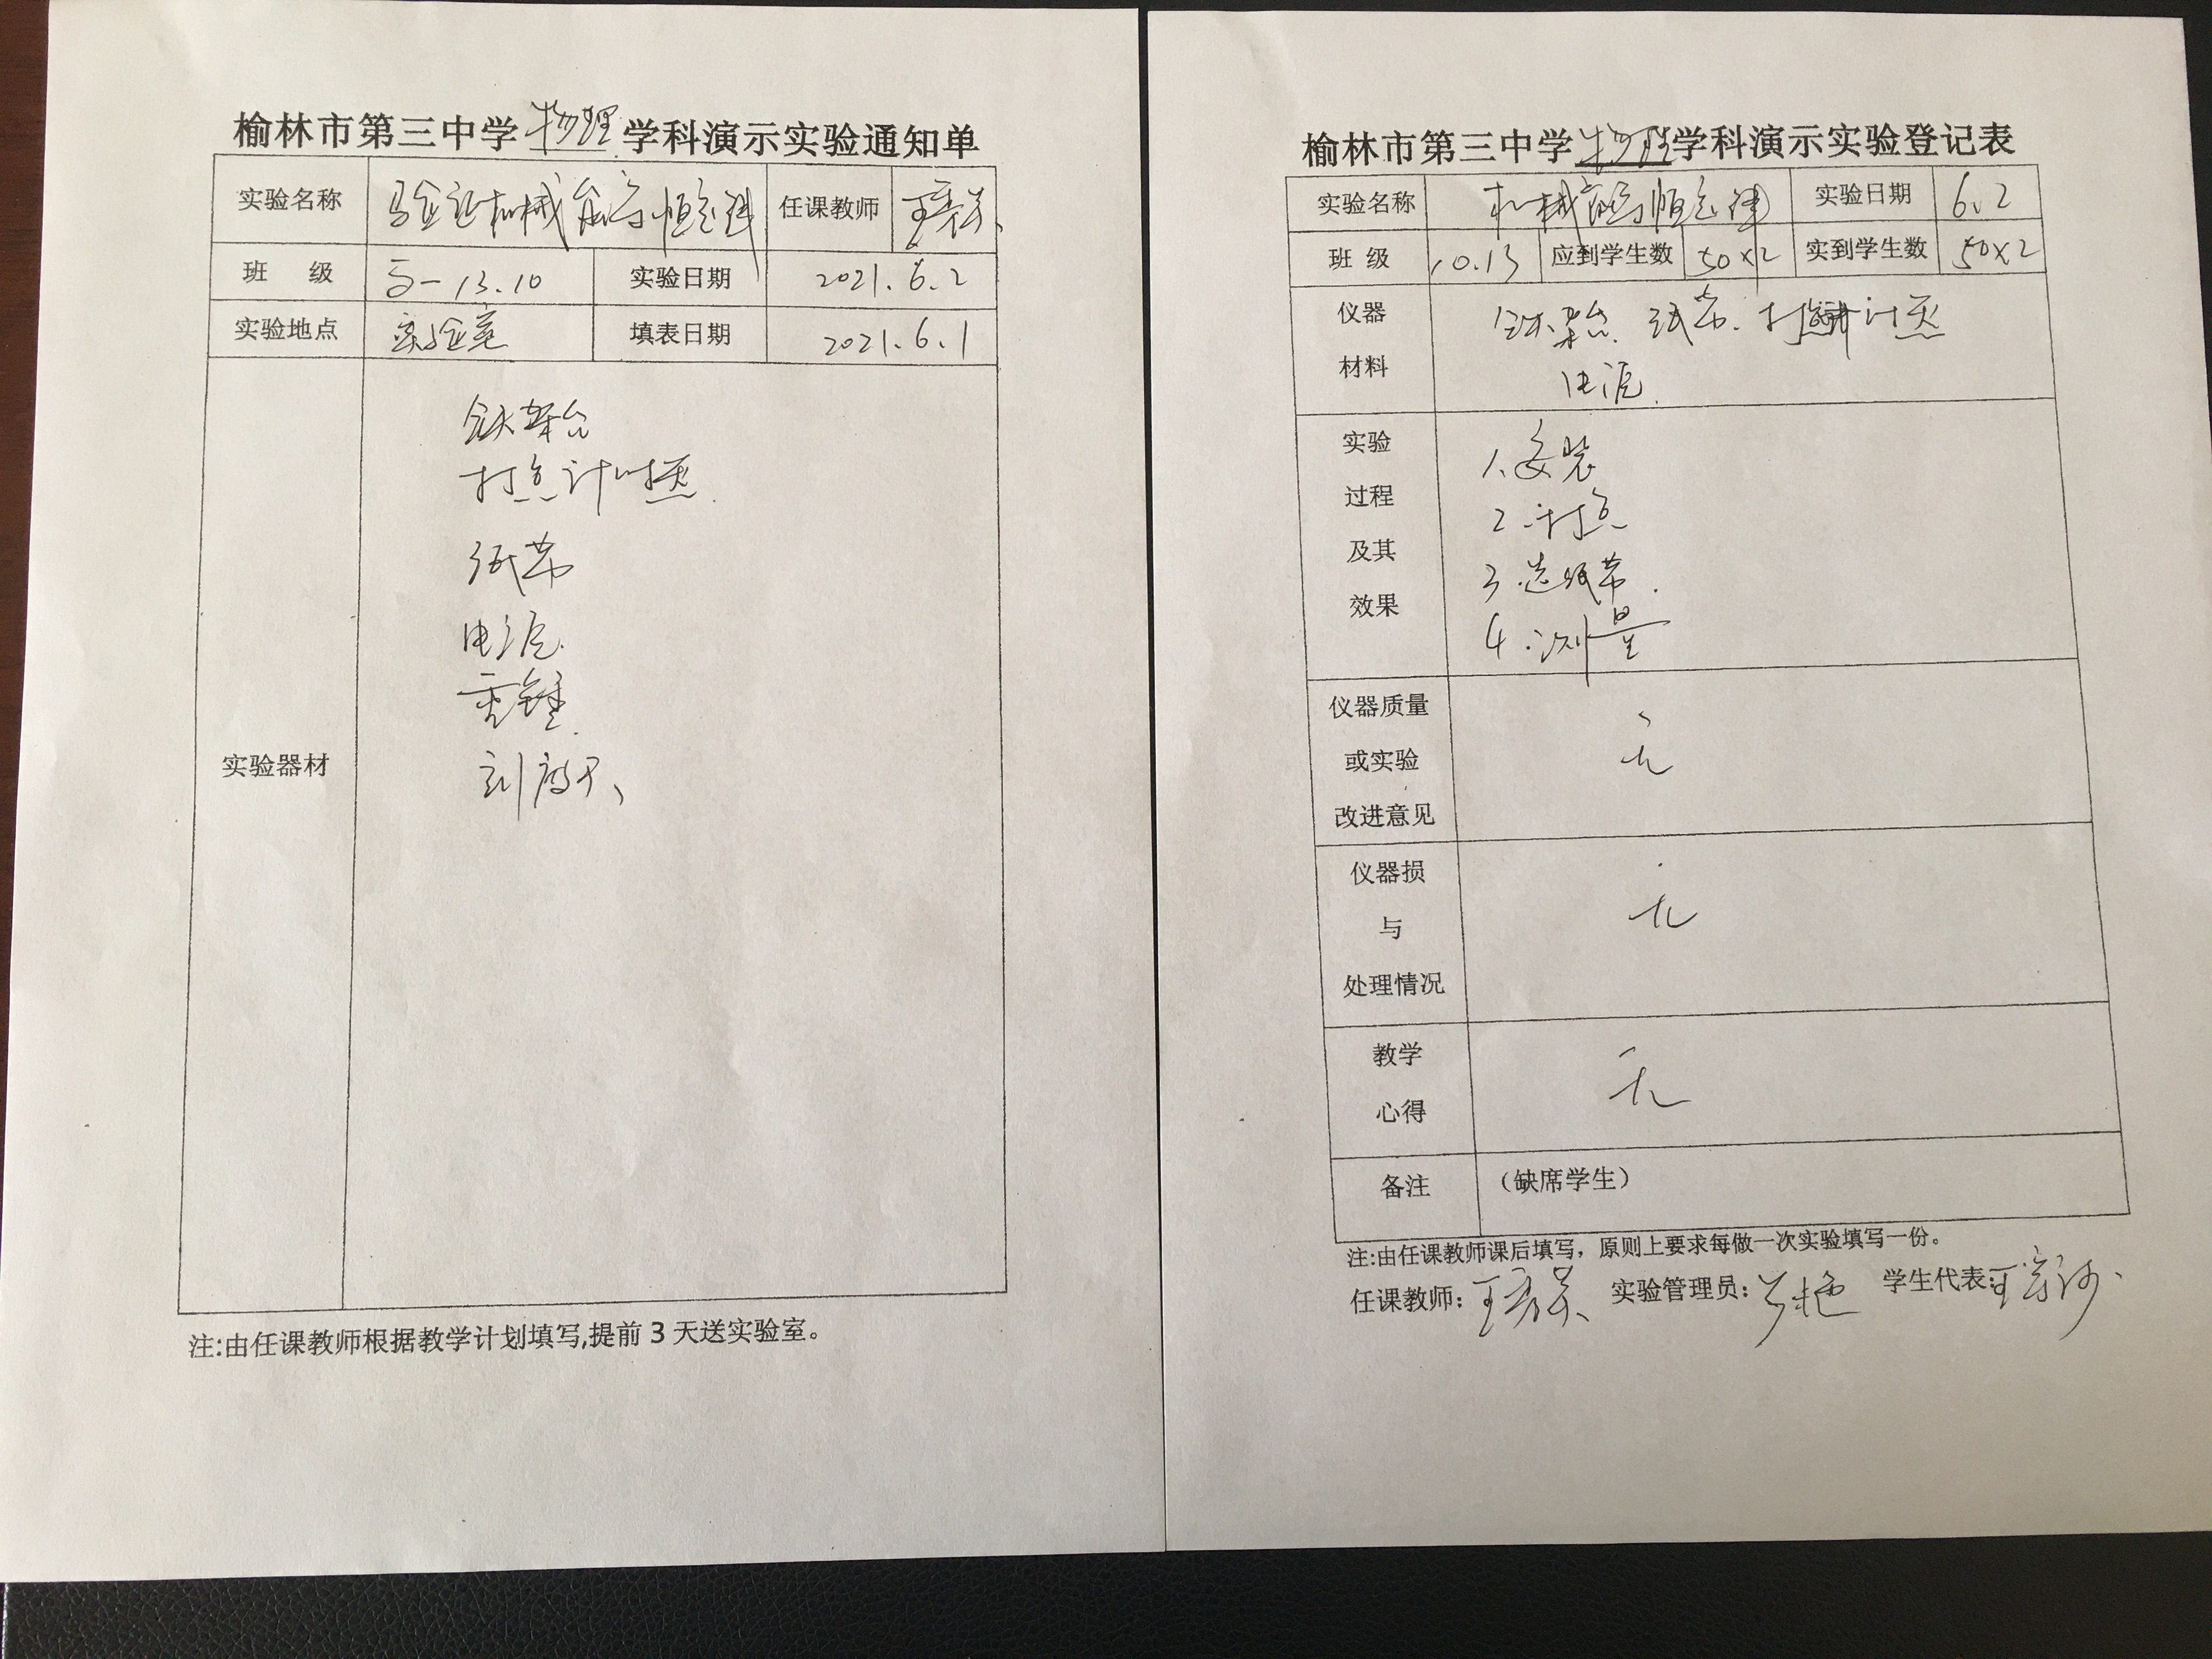 榆林市第三中学 物理 学科演示实验通知单
实验名称 验证机械能守恒定律 任课教师
班 级 高一 13.10 实验日期 2021.6.2
实验地点 实验室 填表日期 2021.6.1
实验器材
铁架台
打点计时器
纸带
电源
重锤
刻度尺
注:由任课教师根据教学计划填写,提前 3 天送实验室。
榆林市第三中学物理学科演示实验登记表
实验名称 机械能守恒定律 实验日期 6.2
班 级 10.13 应到学生数 50×2 实到学生数 50×2
仪器
材料
铁架台. 纸带. 打点计时器
电源.
实验
过程
及其
效果
1.安装
2.打点
3.选纸带.
4.测量
仪器质量
或实验
改进意见
无
仪器损
与
处理情况
无
教学
心得
无
备注 （缺席学生）
注:由任课教师课后填写，原则上要求每做一次实验填写一份。
任课教师: 实验管理员: 学生代表: